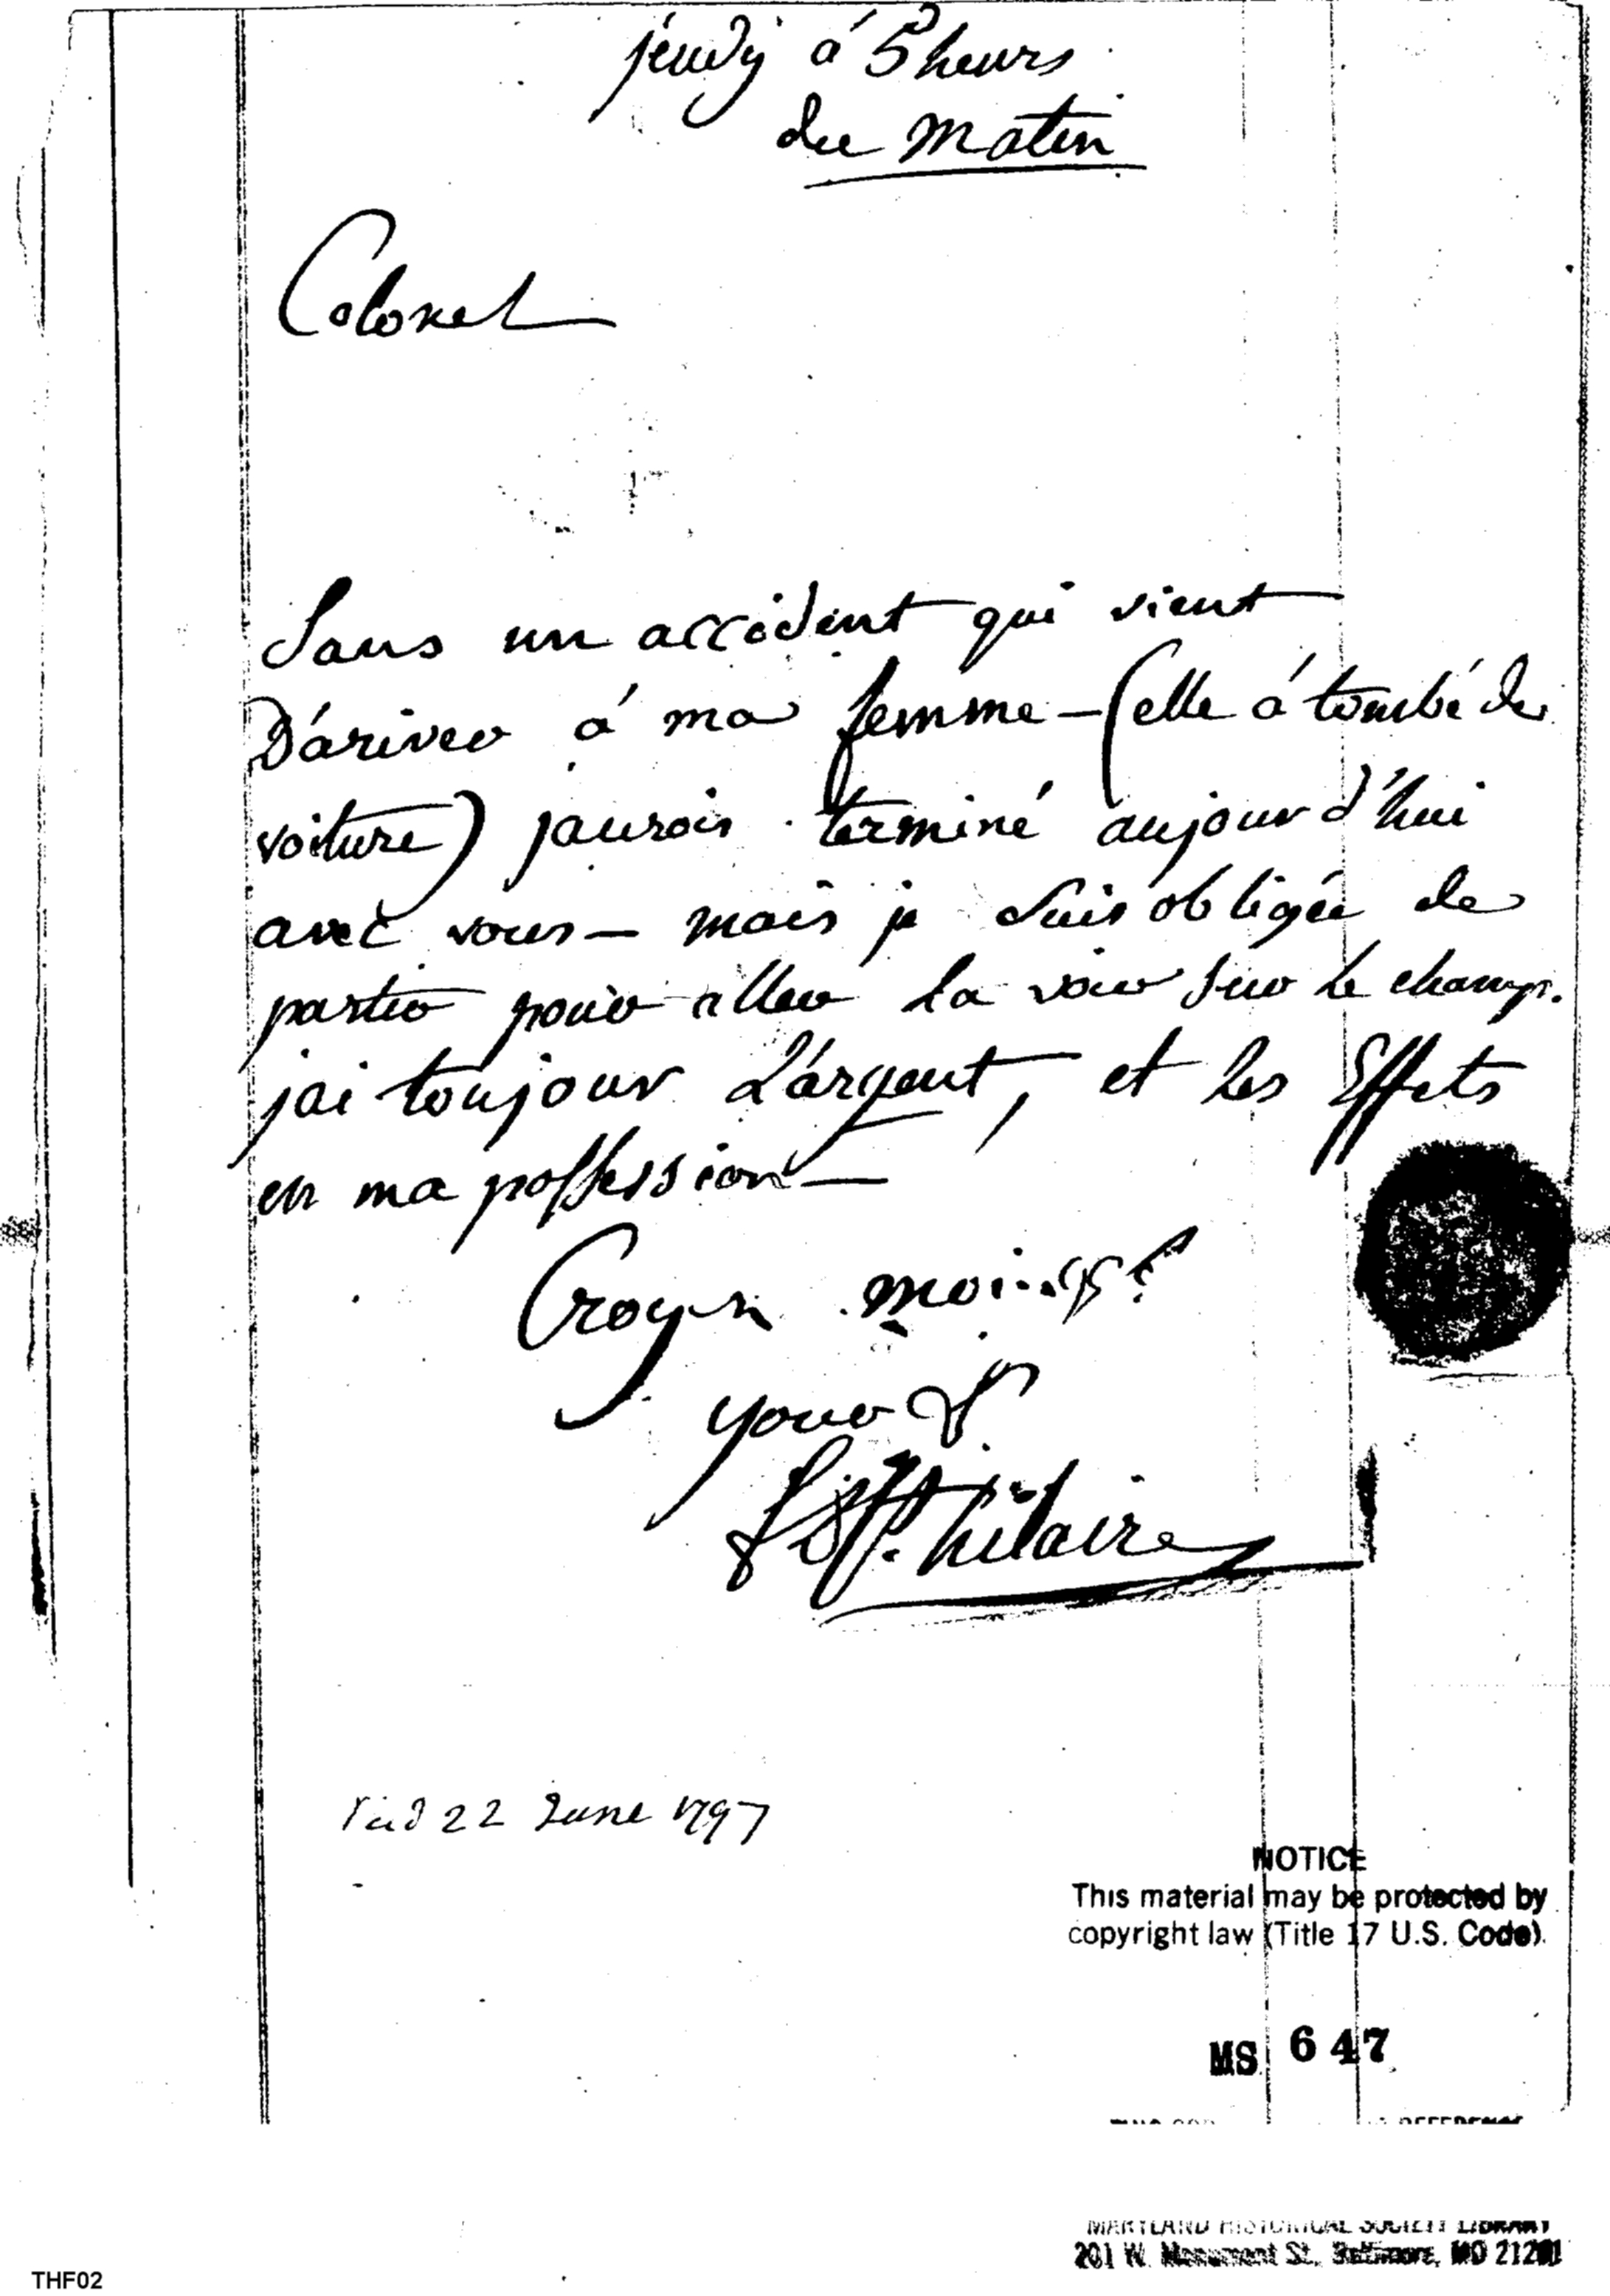 jeudy á 5 heurs
du Matin
Colonel
Sans un accident qui vient
D'ariver á ma femme - (elle á tombé de
voiture) jaurois terminé aujourd'hui
avec vous - mais je suis obligée de
partir pour aller la voir sur le champ.
jai toujour L'argent, et les Effets
en ma possession -
Croyez moi
your &
St. hilaire
22 June 1797
NOTICE
This material may be protected by
copyright law (Title 17 U.S. Code).
MS 647
MARYLAND HISTORICAL SOCIETY LIBRARY
201 W. Monument St., Baltimore, MD 21201
THF02